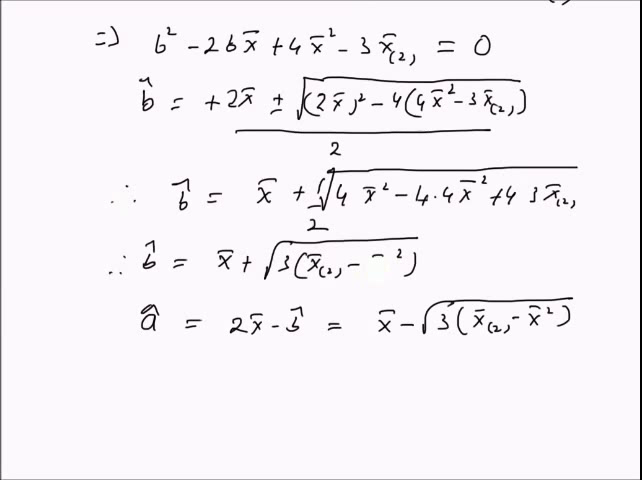 => b² - 2bx̄ + 4x̄² - 3x̄₍₂₎ = 0
b̂ = +2x̄ ± √((2x̄)² - 4(4x̄² - 3x̄₍₂₎)) / 2
∴ b̂ = x̄ + ½√(4x̄² - 4·4x̄² + 4 3x̄₍₂₎
∴ b̂ = x̄ + √(3(x̄₍₂₎ - ¯²))
â = 2x̄ - b̂ = x̄ - √(3(x̄₍₂₎ - x̄²))